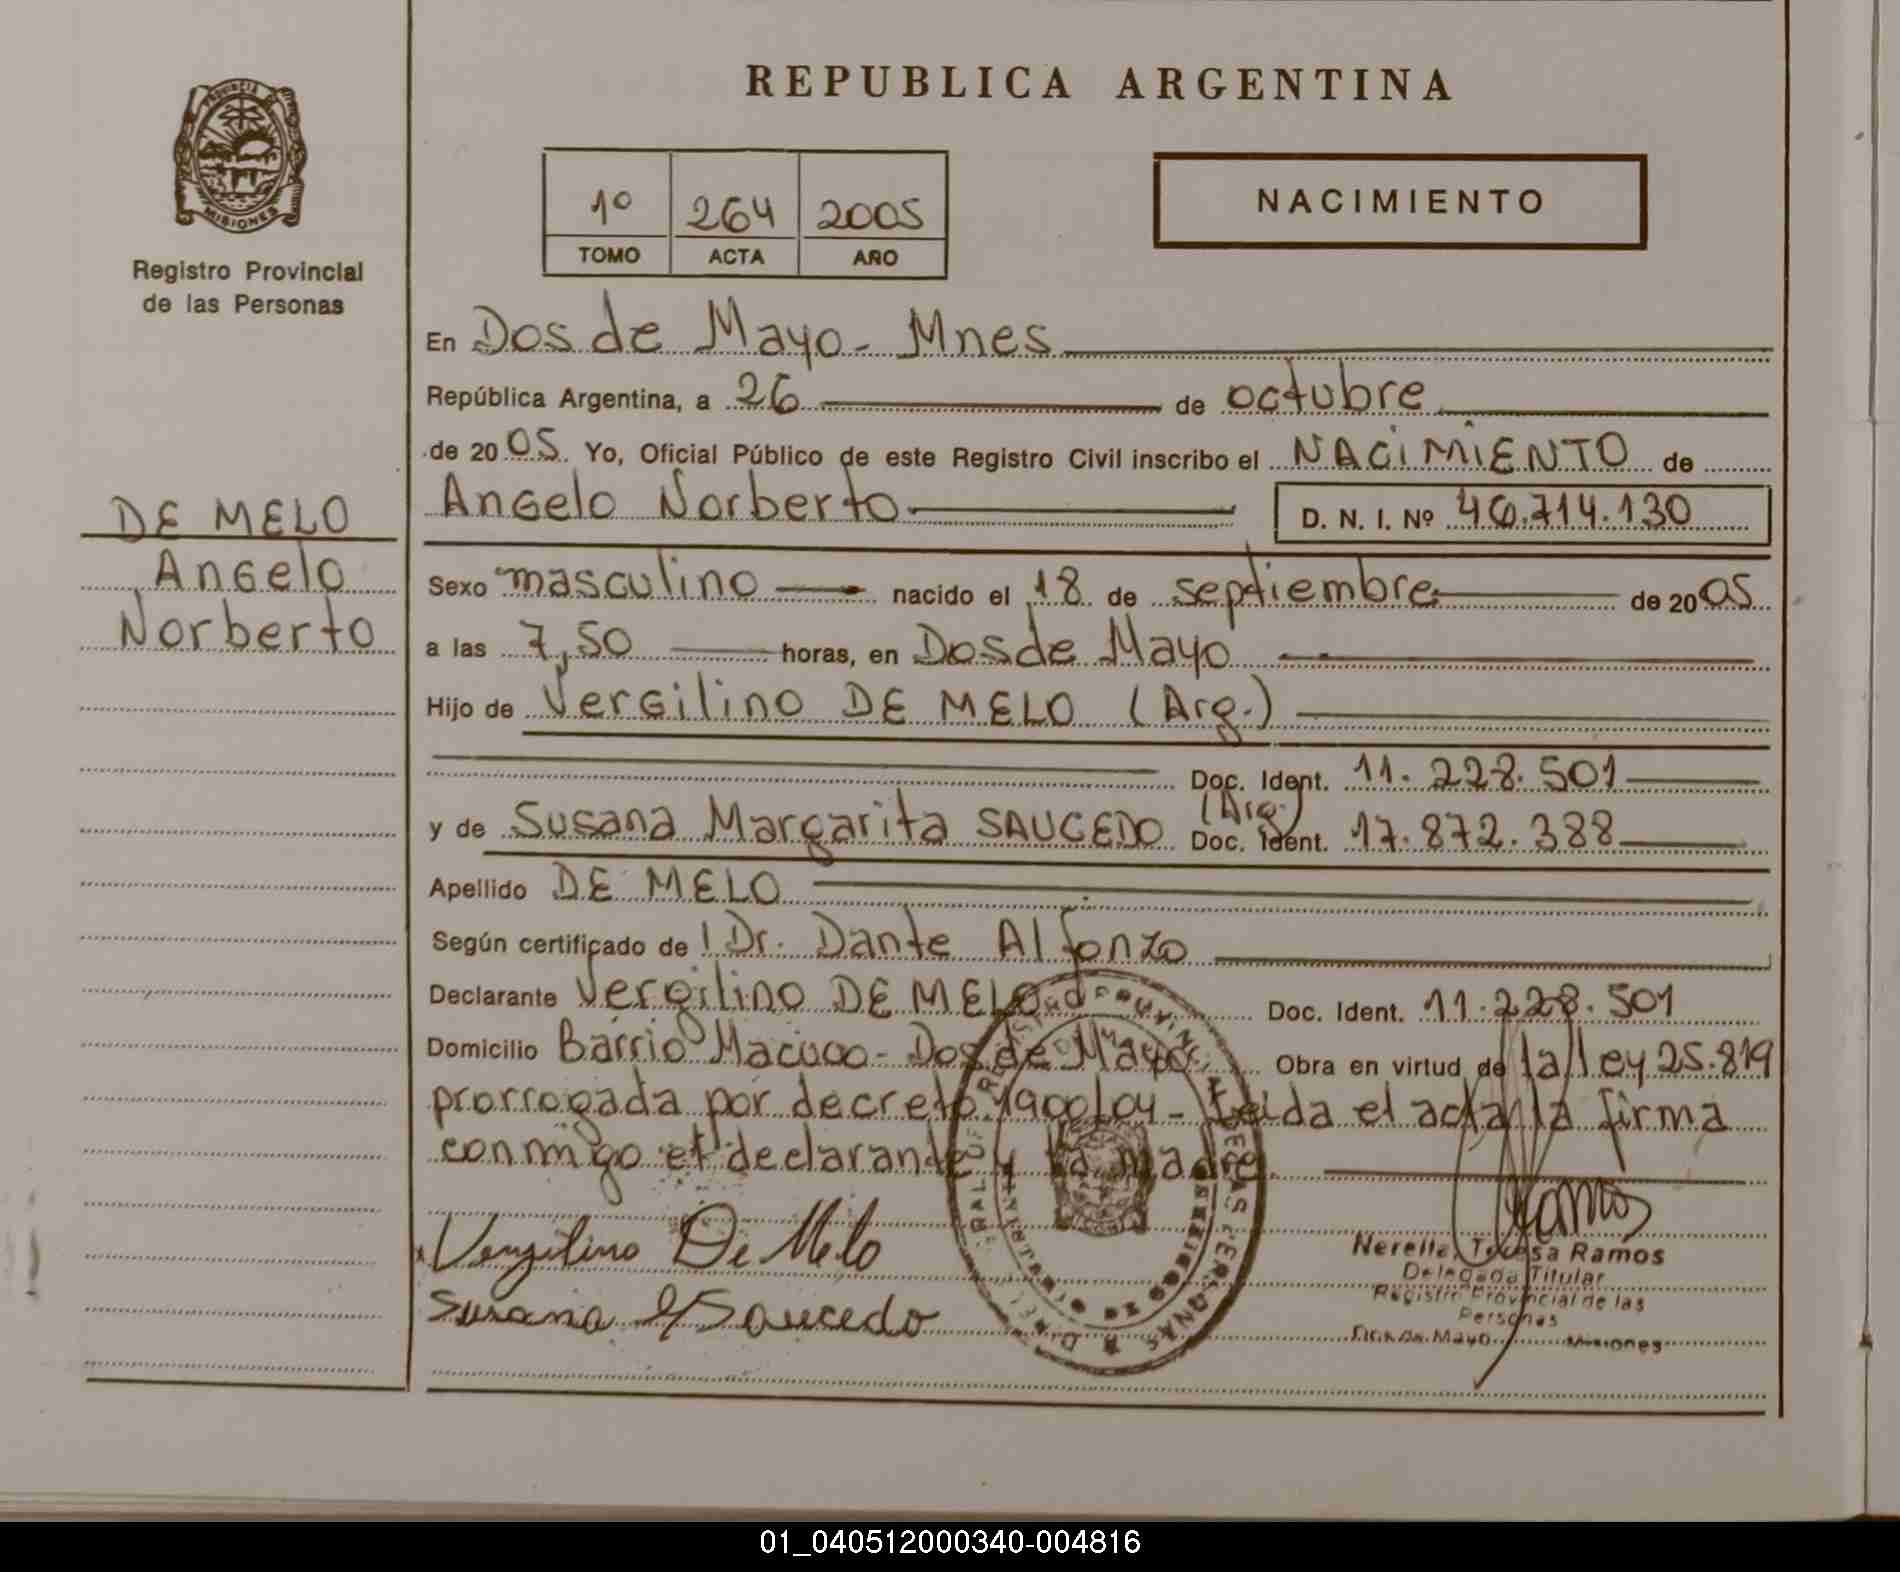 REPUBLICA ARGENTINA
PROVINCIA DE
MISIONES
Registro Provincial
de las Personas
1º 264 2005
TOMO ACTA AÑO
NACIMIENTO
En Dos de Mayo - Mnes
República Argentina, a 26 de octubre
de 2005. Yo, Oficial Público de este Registro Civil inscribo el NACIMIENTO de
Angelo Norberto D. N. I. Nº 46.714.130
DE MELO
Angelo
Norberto
Sexo masculino nacido el 18 de septiembre de 2005
a las 7,50 horas, en Dos de Mayo
Hijo de Vergilino DE MELO (Arg.)
Doc. Ident. 11.228.501
y de Susana Margarita SAUCEDO (Arg.) Doc. Ident. 17.872.388
Apellido DE MELO
Según certificado de Dr. Dante Alfonzo
Declarante Vergilino DE MELO Doc. Ident. 11.228.501
Domicilio Barrio Macuco - Dos de Mayo Obra en virtud de la ley 25.819
prorrogada por decreto 1900/04 - Leida el acta la firma
conmigo el declarante y la madre.
Vergilino De Melo
Susana Saucedo
Ramos
Nerella Teresa Ramos
Delegada Titular
Registro Provincial de las
Personas
Dos de Mayo Misiones
01_040512000340-004816